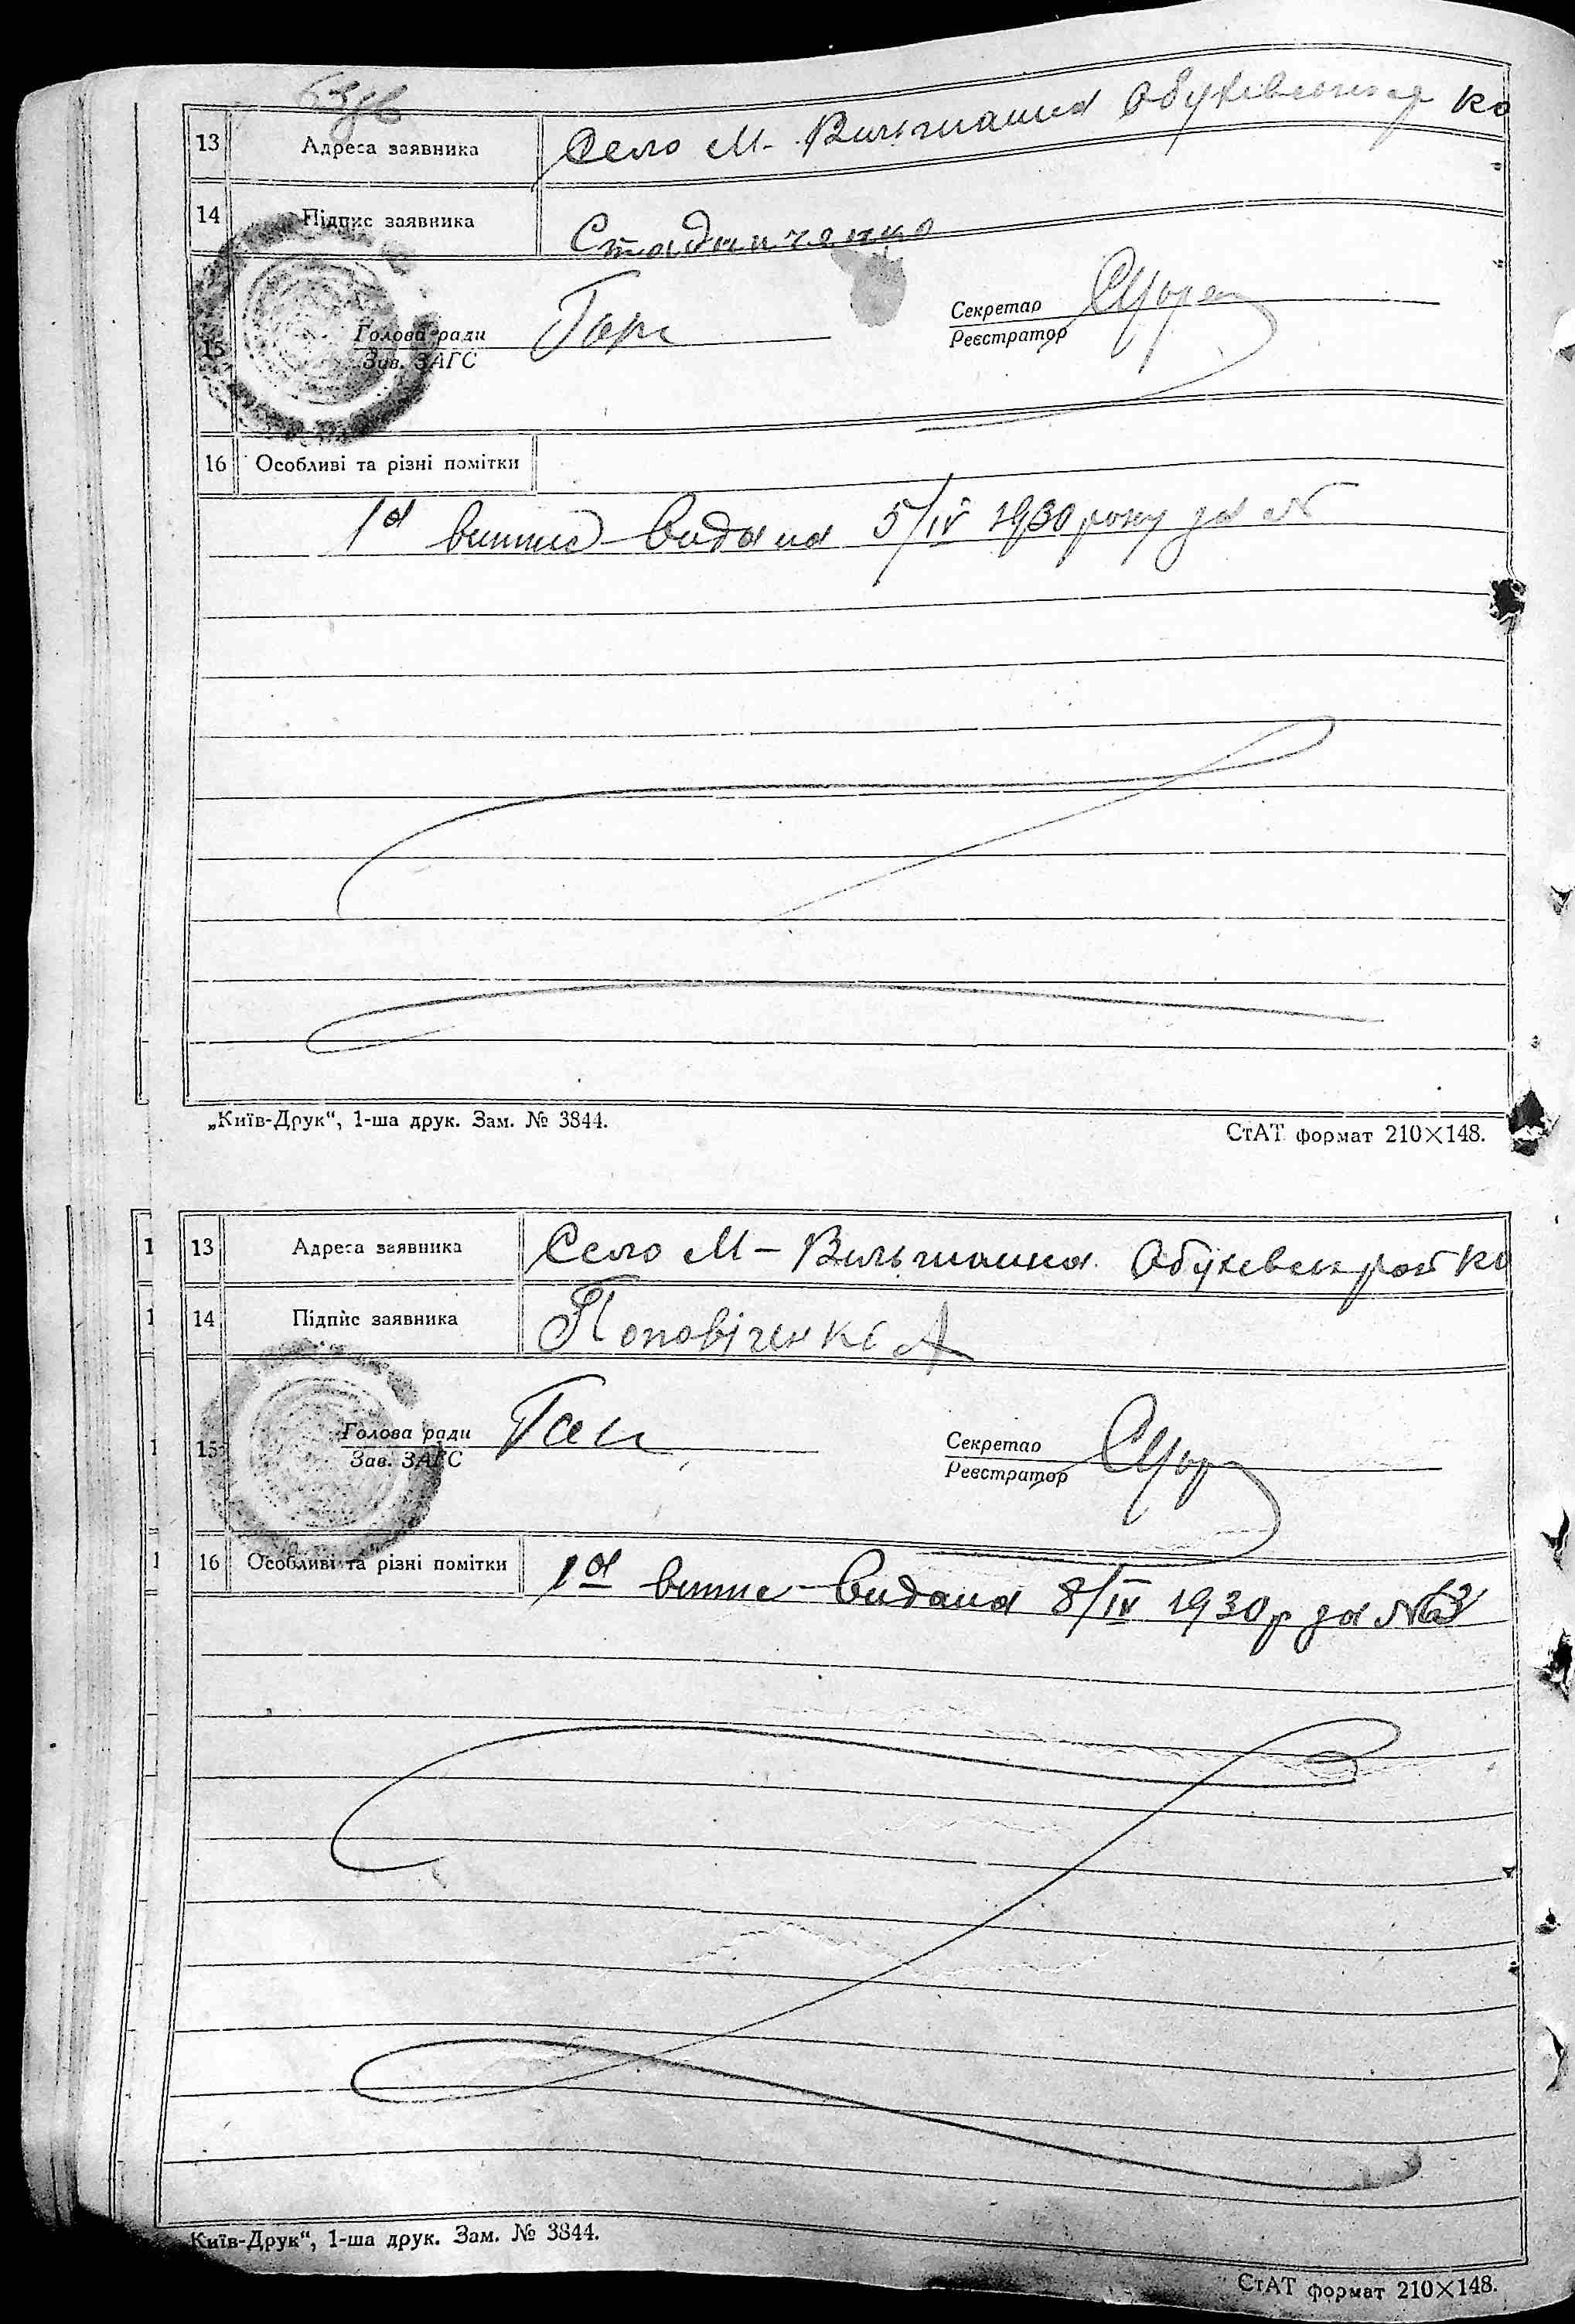 13 Адреса заявника Село М- Вильшанка Обухівського р ко
14 Підпис заявника Стадниченко
15 Голова ради Секретар
Зав. ЗАГС Реєстратор
16 Особливі та різні помітки
1а випис видана 5/IV 1930 року за №
„Київ-Друк“, 1-ша друк. Зам. № 3844.
СтАТ формат 210×148.
13 Адреса заявника Село М- Вильшанка Обухівськ рай ко
14 Підпис заявника Поповіченко А
15 Голова ради Секретар
Зав. ЗАГС Реєстратор
16 Особливі та різні помітки 1а випис видана 8/IV 1930 р за №
Київ-Друк“, 1-ша друк. Зам. № 3844.
СтАТ формат 210×148.